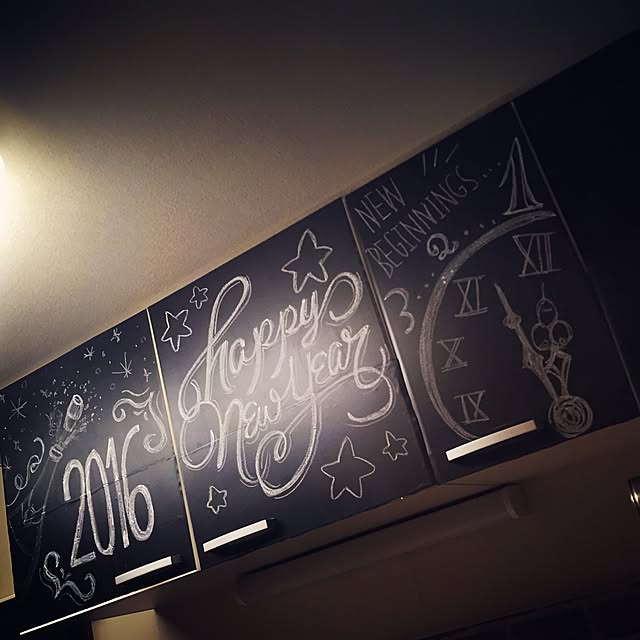 2016
happy
New Year
NEW
BEGINNINGS...
3..2....1
XII
XI
X
IX